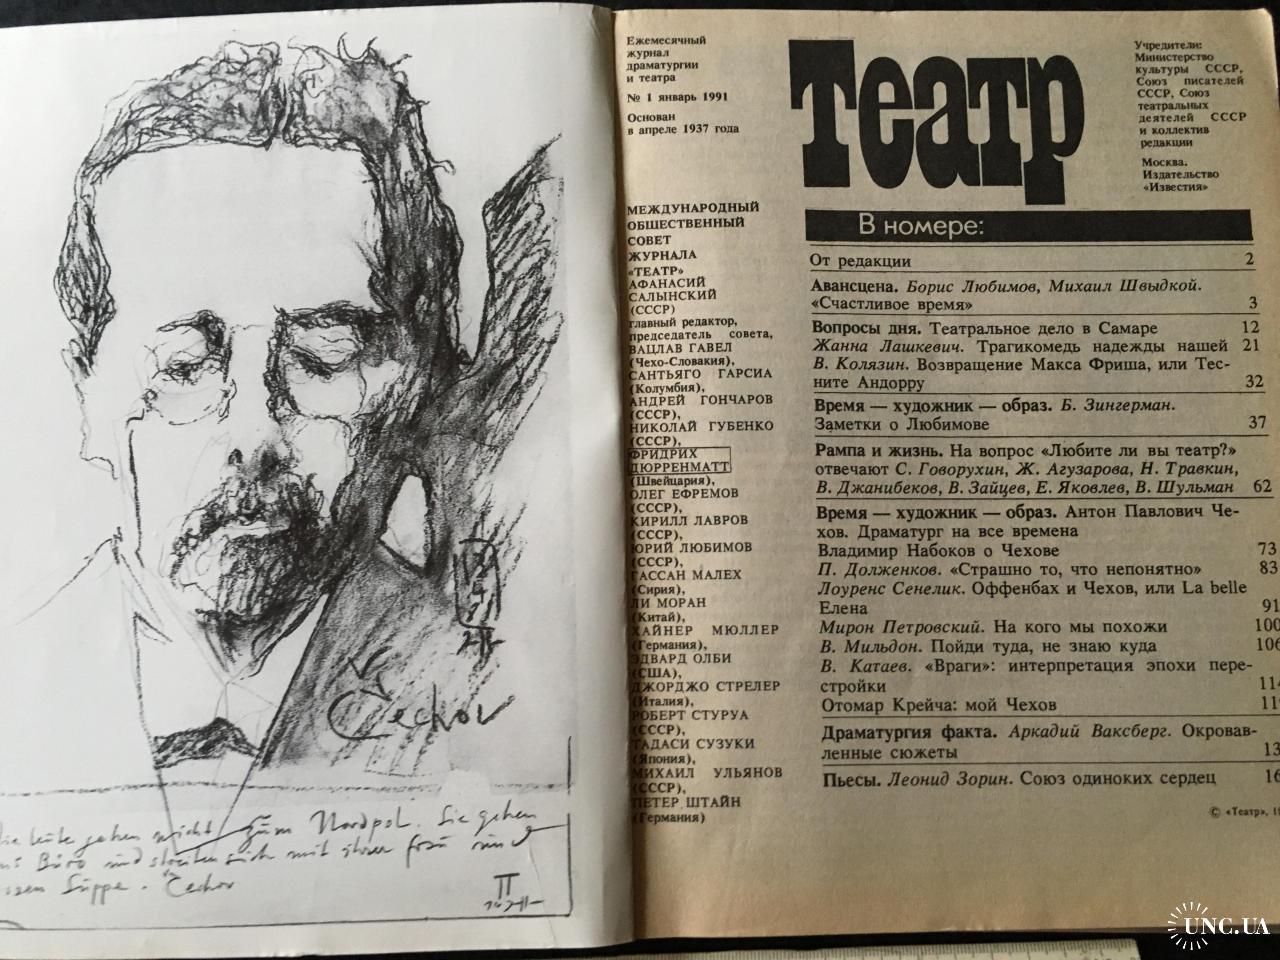 Čechov
leute gehen nicht zum Nordpol. Sie gehen
Büro und streiten sich mit ihrer frau und
Suppe. Čechov
II
Ежемесячный
журнал
драматургии
и театра
№ 1 январь 1991
Основан
в апреле 1937 года
театр
Учредители:
Министерство
культуры СССР,
Союз писателей
СССР, Союз
театральных
деятелей СССР
и коллектив
редакции
Москва.
Издательство
«Известия»
МЕЖДУНАРОДНЫЙ
ОБЩЕСТВЕННЫЙ
СОВЕТ
ЖУРНАЛА
«ТЕАТР»
АФАНАСИЙ
САЛЫНСКИЙ
(СССР)
главный редактор,
председатель совета,
ВАЦЛАВ ГАВЕЛ
(Чехо-Словакия),
САНТЬЯГО ГАРСИА
(Колумбия),
АНДРЕЙ ГОНЧАРОВ
(СССР),
НИКОЛАЙ ГУБЕНКО
(СССР),
ФРИДРИХ
ДЮРРЕНМАТТ
(Швейцария),
ОЛЕГ ЕФРЕМОВ
(СССР),
КИРИЛЛ ЛАВРОВ
(СССР),
ЮРИЙ ЛЮБИМОВ
(СССР),
ГАССАН МАЛЕХ
(Сирия),
ЛИ МОРАН
(Китай),
ХАЙНЕР МЮЛЛЕР
(Германия),
ЭДВАРД ОЛБИ
(США),
ДЖОРДЖО СТРЕЛЕР
(Италия),
РОБЕРТ СТУРУА
(СССР),
ТАДАСИ СУЗУКИ
(Япония),
МИХАИЛ УЛЬЯНОВ
(СССР),
ПЕТЕР ШТАЙН
(Германия)
В номере:
От редакции 2
Авансцена. Борис Любимов, Михаил Швыдкой.
«Счастливое время» 3
Вопросы дня. Театральное дело в Самаре 12
Жанна Лашкевич. Трагикомедь надежды нашей 21
В. Колязин. Возвращение Макса Фриша, или Тес-
ните Андорру 32
Время — художник — образ. Б. Зингерман.
Заметки о Любимове 37
Рампа и жизнь. На вопрос «Любите ли вы театр?»
отвечают С. Говорухин, Ж. Агузарова, Н. Травкин,
В. Джанибеков, В. Зайцев, Е. Яковлев, В. Шульман 62
Время — художник — образ. Антон Павлович Че-
хов. Драматург на все времена
Владимир Набоков о Чехове 73
П. Долженков. «Страшно то, что непонятно» 83
Лоуренс Сенелик. Оффенбах и Чехов, или La belle
Елена 91
Мирон Петровский. На кого мы похожи 100
В. Мильдон. Пойди туда, не знаю куда 106
В. Катаев. «Враги»: интерпретация эпохи пере-
стройки 114
Отомар Крейча: мой Чехов 11
Драматургия факта. Аркадий Ваксберг. Окровав-
ленные сюжеты 13
Пьесы. Леонид Зорин. Союз одиноких сердец 16
© «Театр», 1
UNC.UA